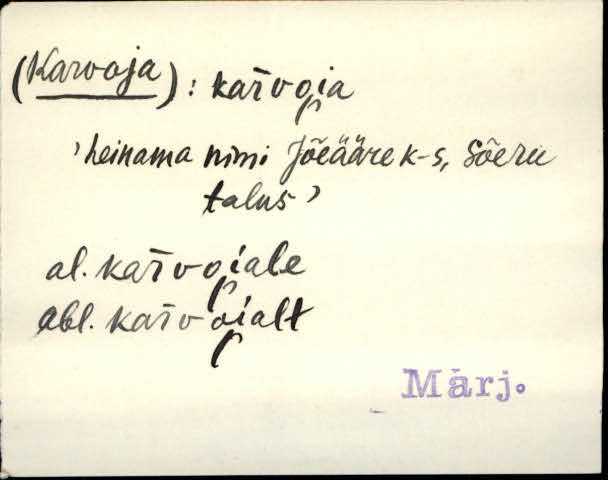 (Karvoja) : kar̄vo̢i̯a
’heinama nimi Jõeääre k-s, Sõeru
talus’
al. kar̄vo̢i̯ale
abl. kar̄vo̢i̯alt
Märj.